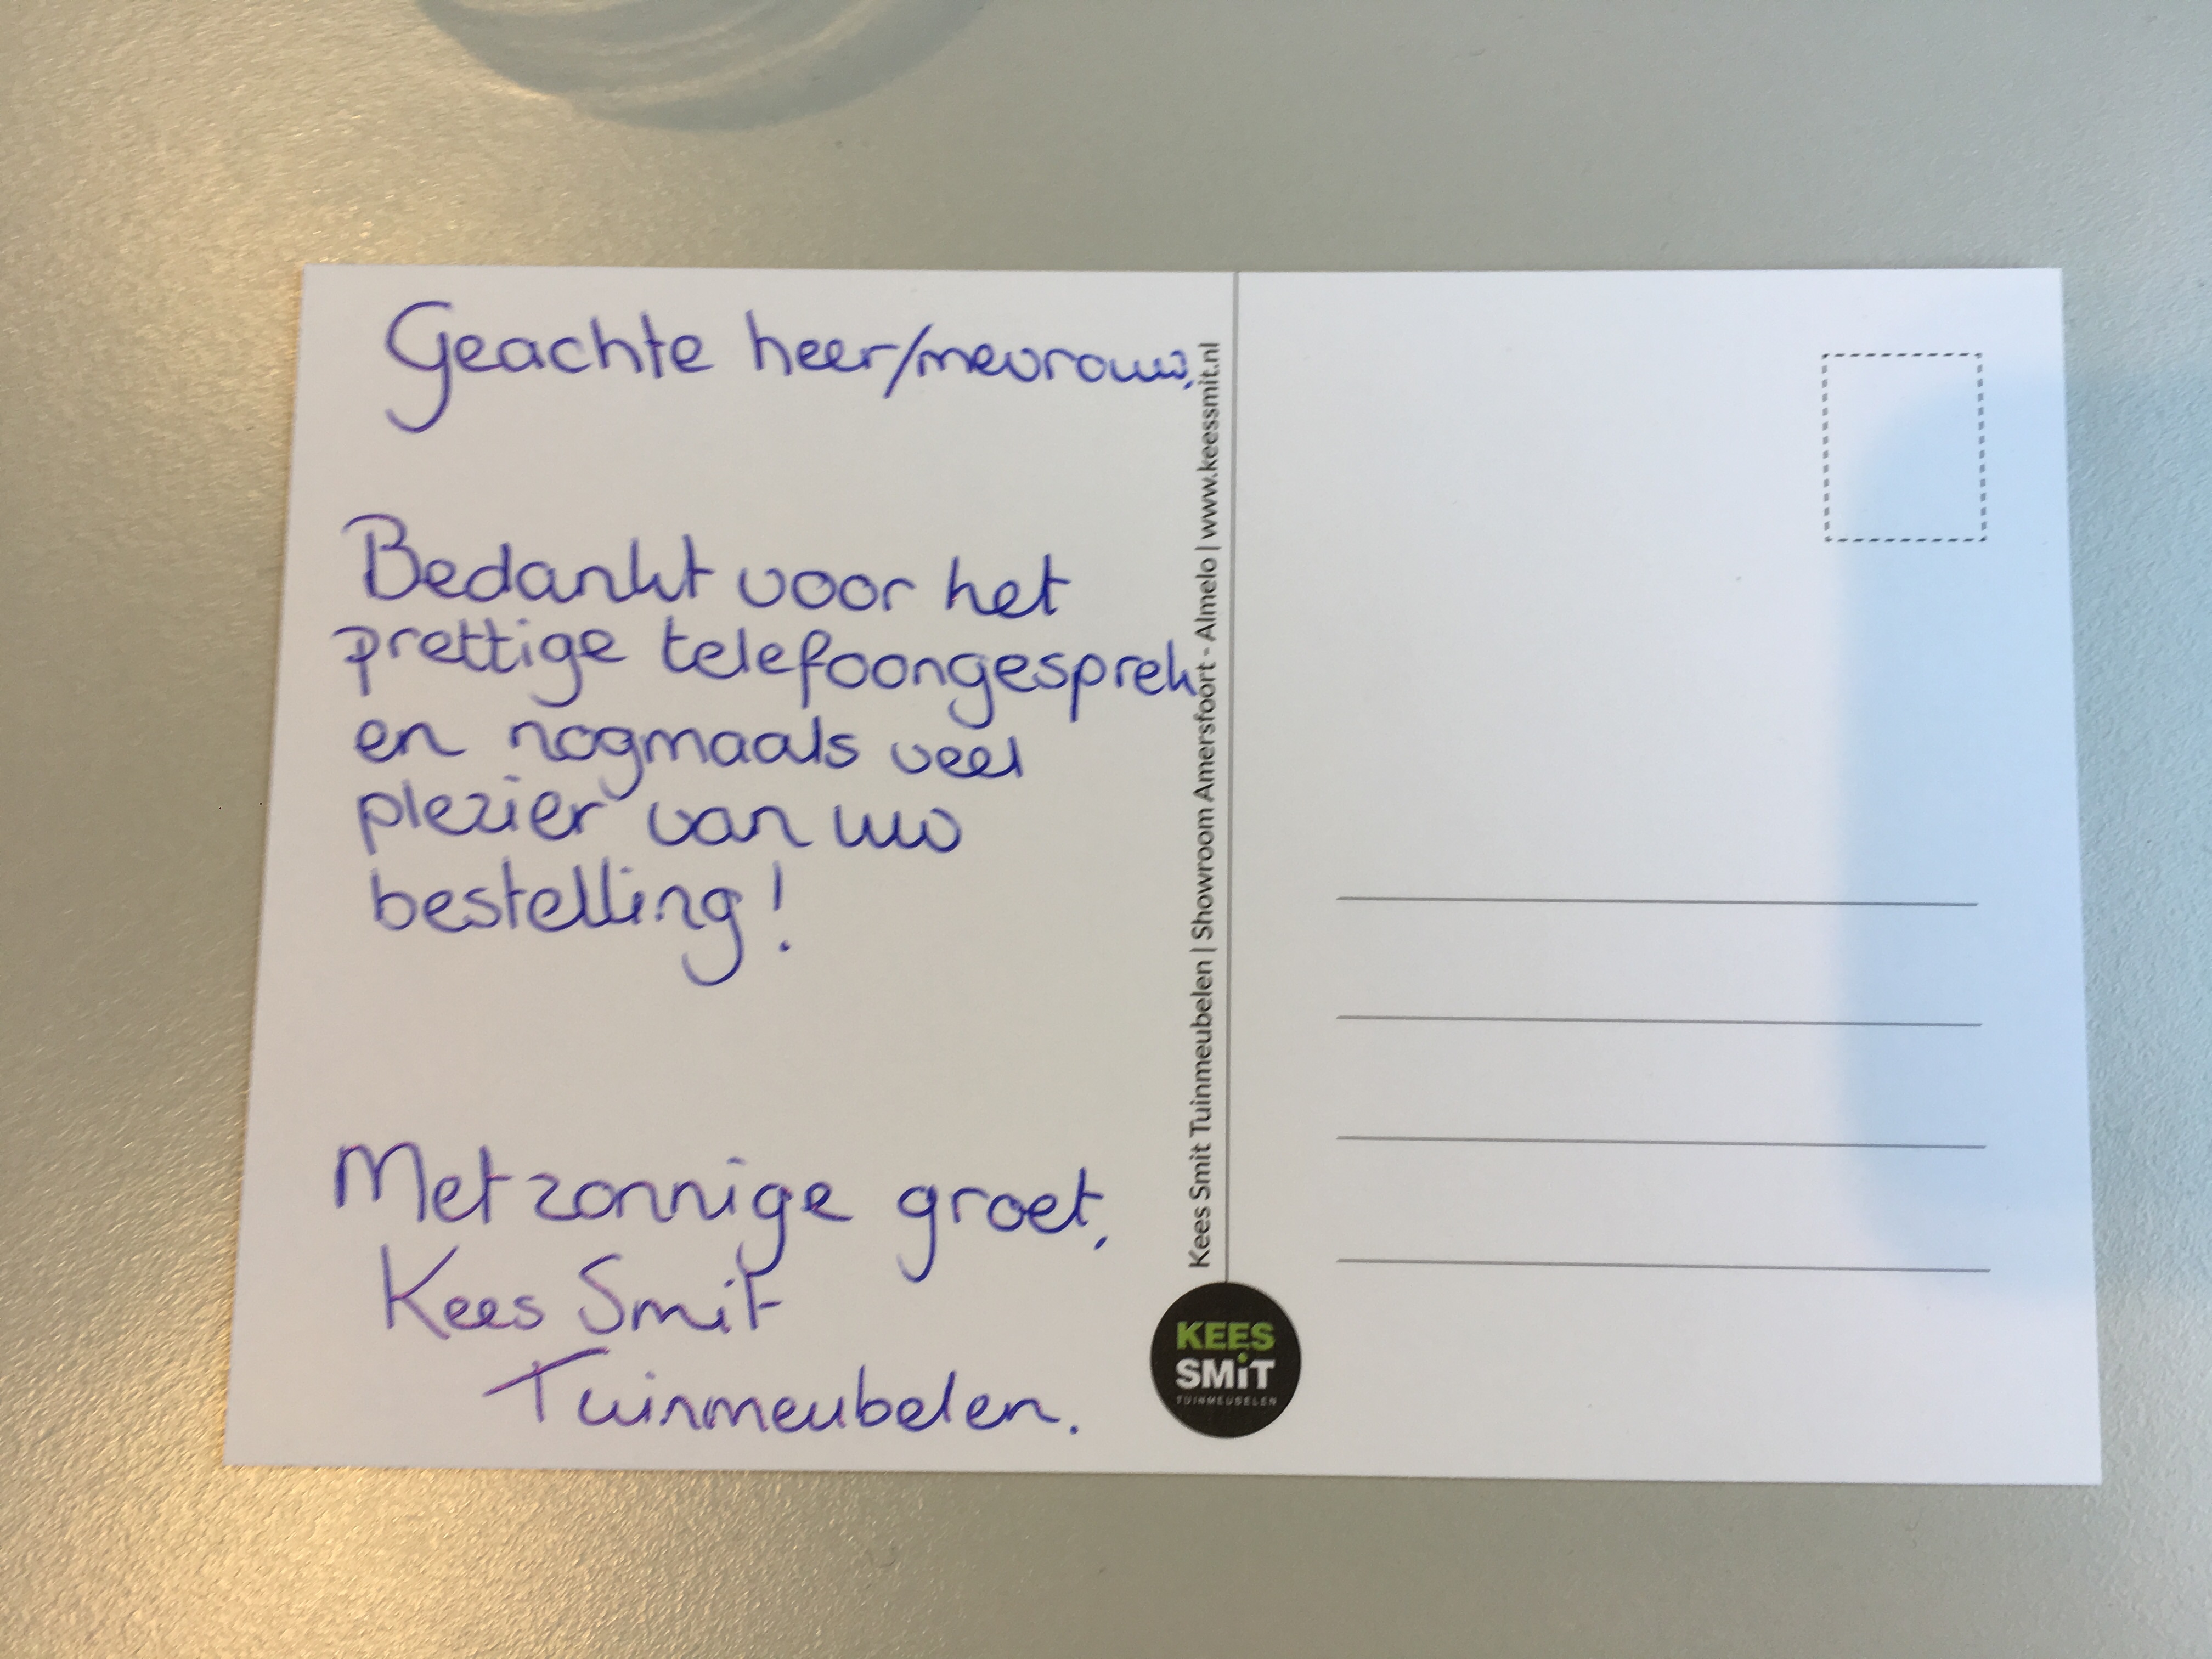 Geachte heer/mevrouw,
Bedankt voor het
prettige telefoongesprek
en nogmaals veel
plezier van uw
bestelling!
Met zonnige groet,
Kees Smit
Tuinmeubelen.
Kees Smit Tuinmeubelen | Showroom Amersfoort - Almelo | www.keessmit.nl
KEES
SMiT
TUINMEUBELEN